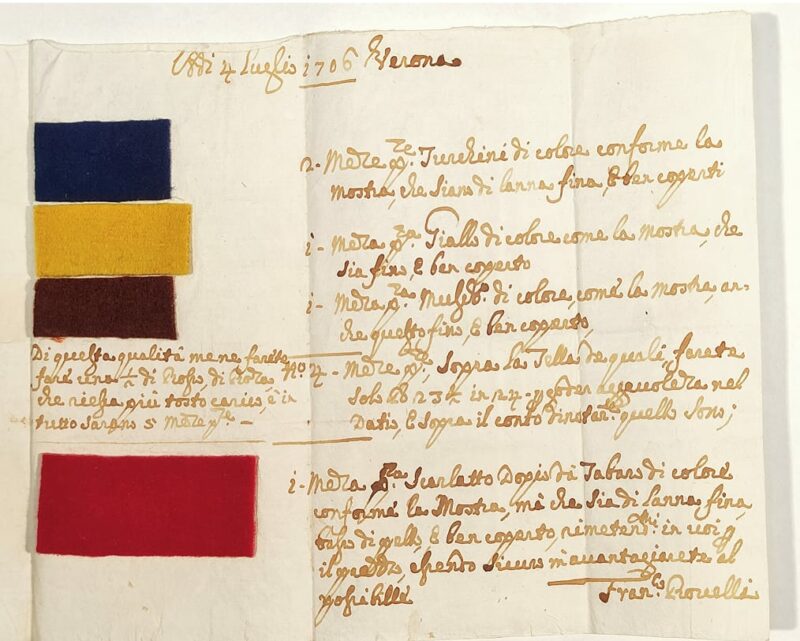 Addi 4 Luglio 1706 Verona
2- Meze p.ze Turchini di colore conforme la
mostra, che siano di lanna fina, e ben coperti
1- Meza p.za Giallo di colore come la mostra, che
sia fino, e ben coperto
1- Meza p.za di colore, come la mostra, an-
che questo fino, e ben coperto,
Di questa qualità me ne farete
fare una di
che riesca più tosto carico, è in
tutto sarano 5 meze p.ze -
No. 4 - Meze p.ze, Sopra la Tella de quali, farete
solo 234 in 24 - nel
Datio, e sopra il conto quello sono;
1- Meza p.za Scarlatto Dopio da Tabaro di colore
conforme la Mostra, mà che sia di lanna fina,
di pello, e ben coperto, in voi p
il , essendo sicuro m'avantagiarete al
possibille
Fran.co Rovelli